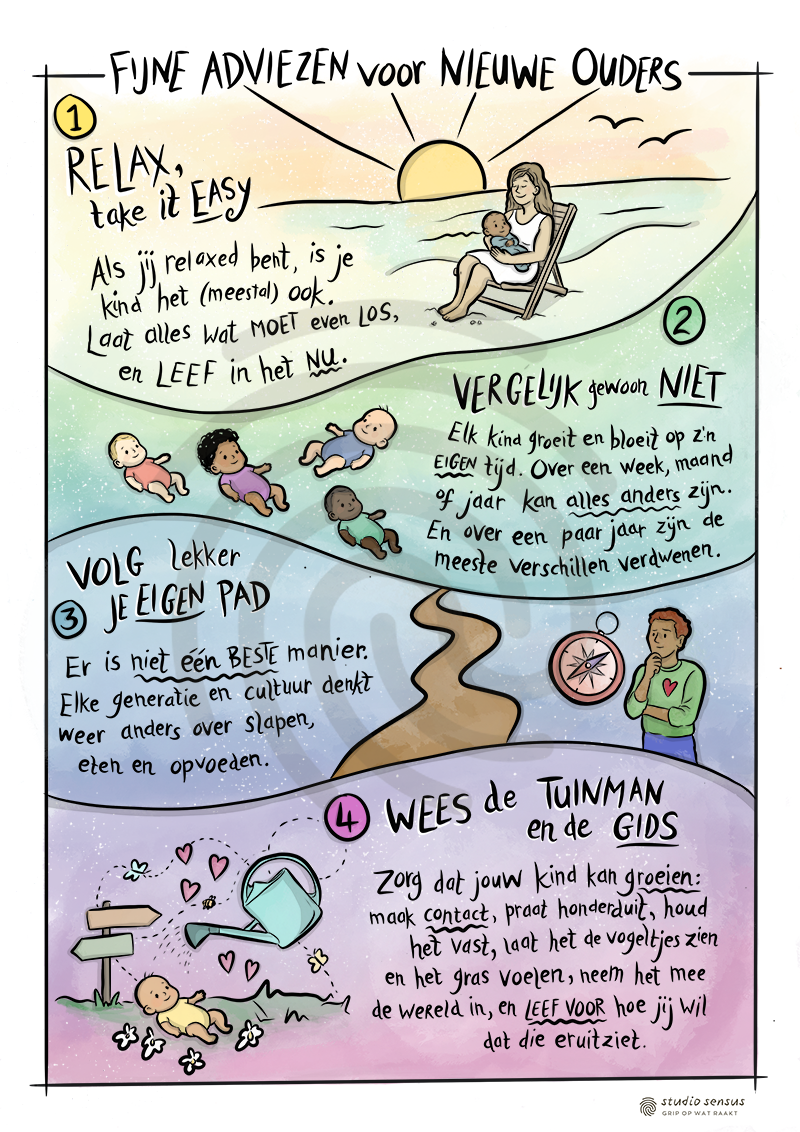 FIJNE ADVIEZEN voor NIEUWE OUDERS
1
RELAX,
take it EASY
Als jij relaxed bent, is je
kind het (meestal) ook.
Laat alles wat MOET even LOS,
en LEEF in het NU.
2
VERGELIJK gewoon NIET
Elk kind groeit en bloeit op z'n
EIGEN tijd. Over een week, maand
of jaar kan alles anders zijn.
En over een paar jaar zijn de
meeste verschillen verdwenen.
VOLG lekker
JE EIGEN PAD
3
Er is niet één BESTE manier.
Elke generatie en cultuur denkt
weer anders over slapen,
eten en opvoeden.
4
WEES de TUINMAN
en de GIDS
Zorg dat jouw kind kan groeien:
maak contact, praat honderduit, houd
het vast, laat het de vogeltjes zien
en het gras voelen, neem het mee
de wereld in, en LEEF VOOR hoe jij wil
dat die eruitziet.
studio sensus
GRIP OP WAT RAAKT